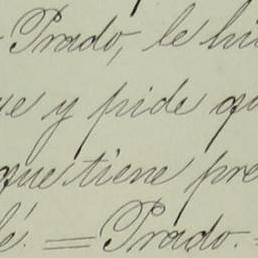 Prado, le hi
ue y pide qu
que tiene pre
lé. = Prado. =